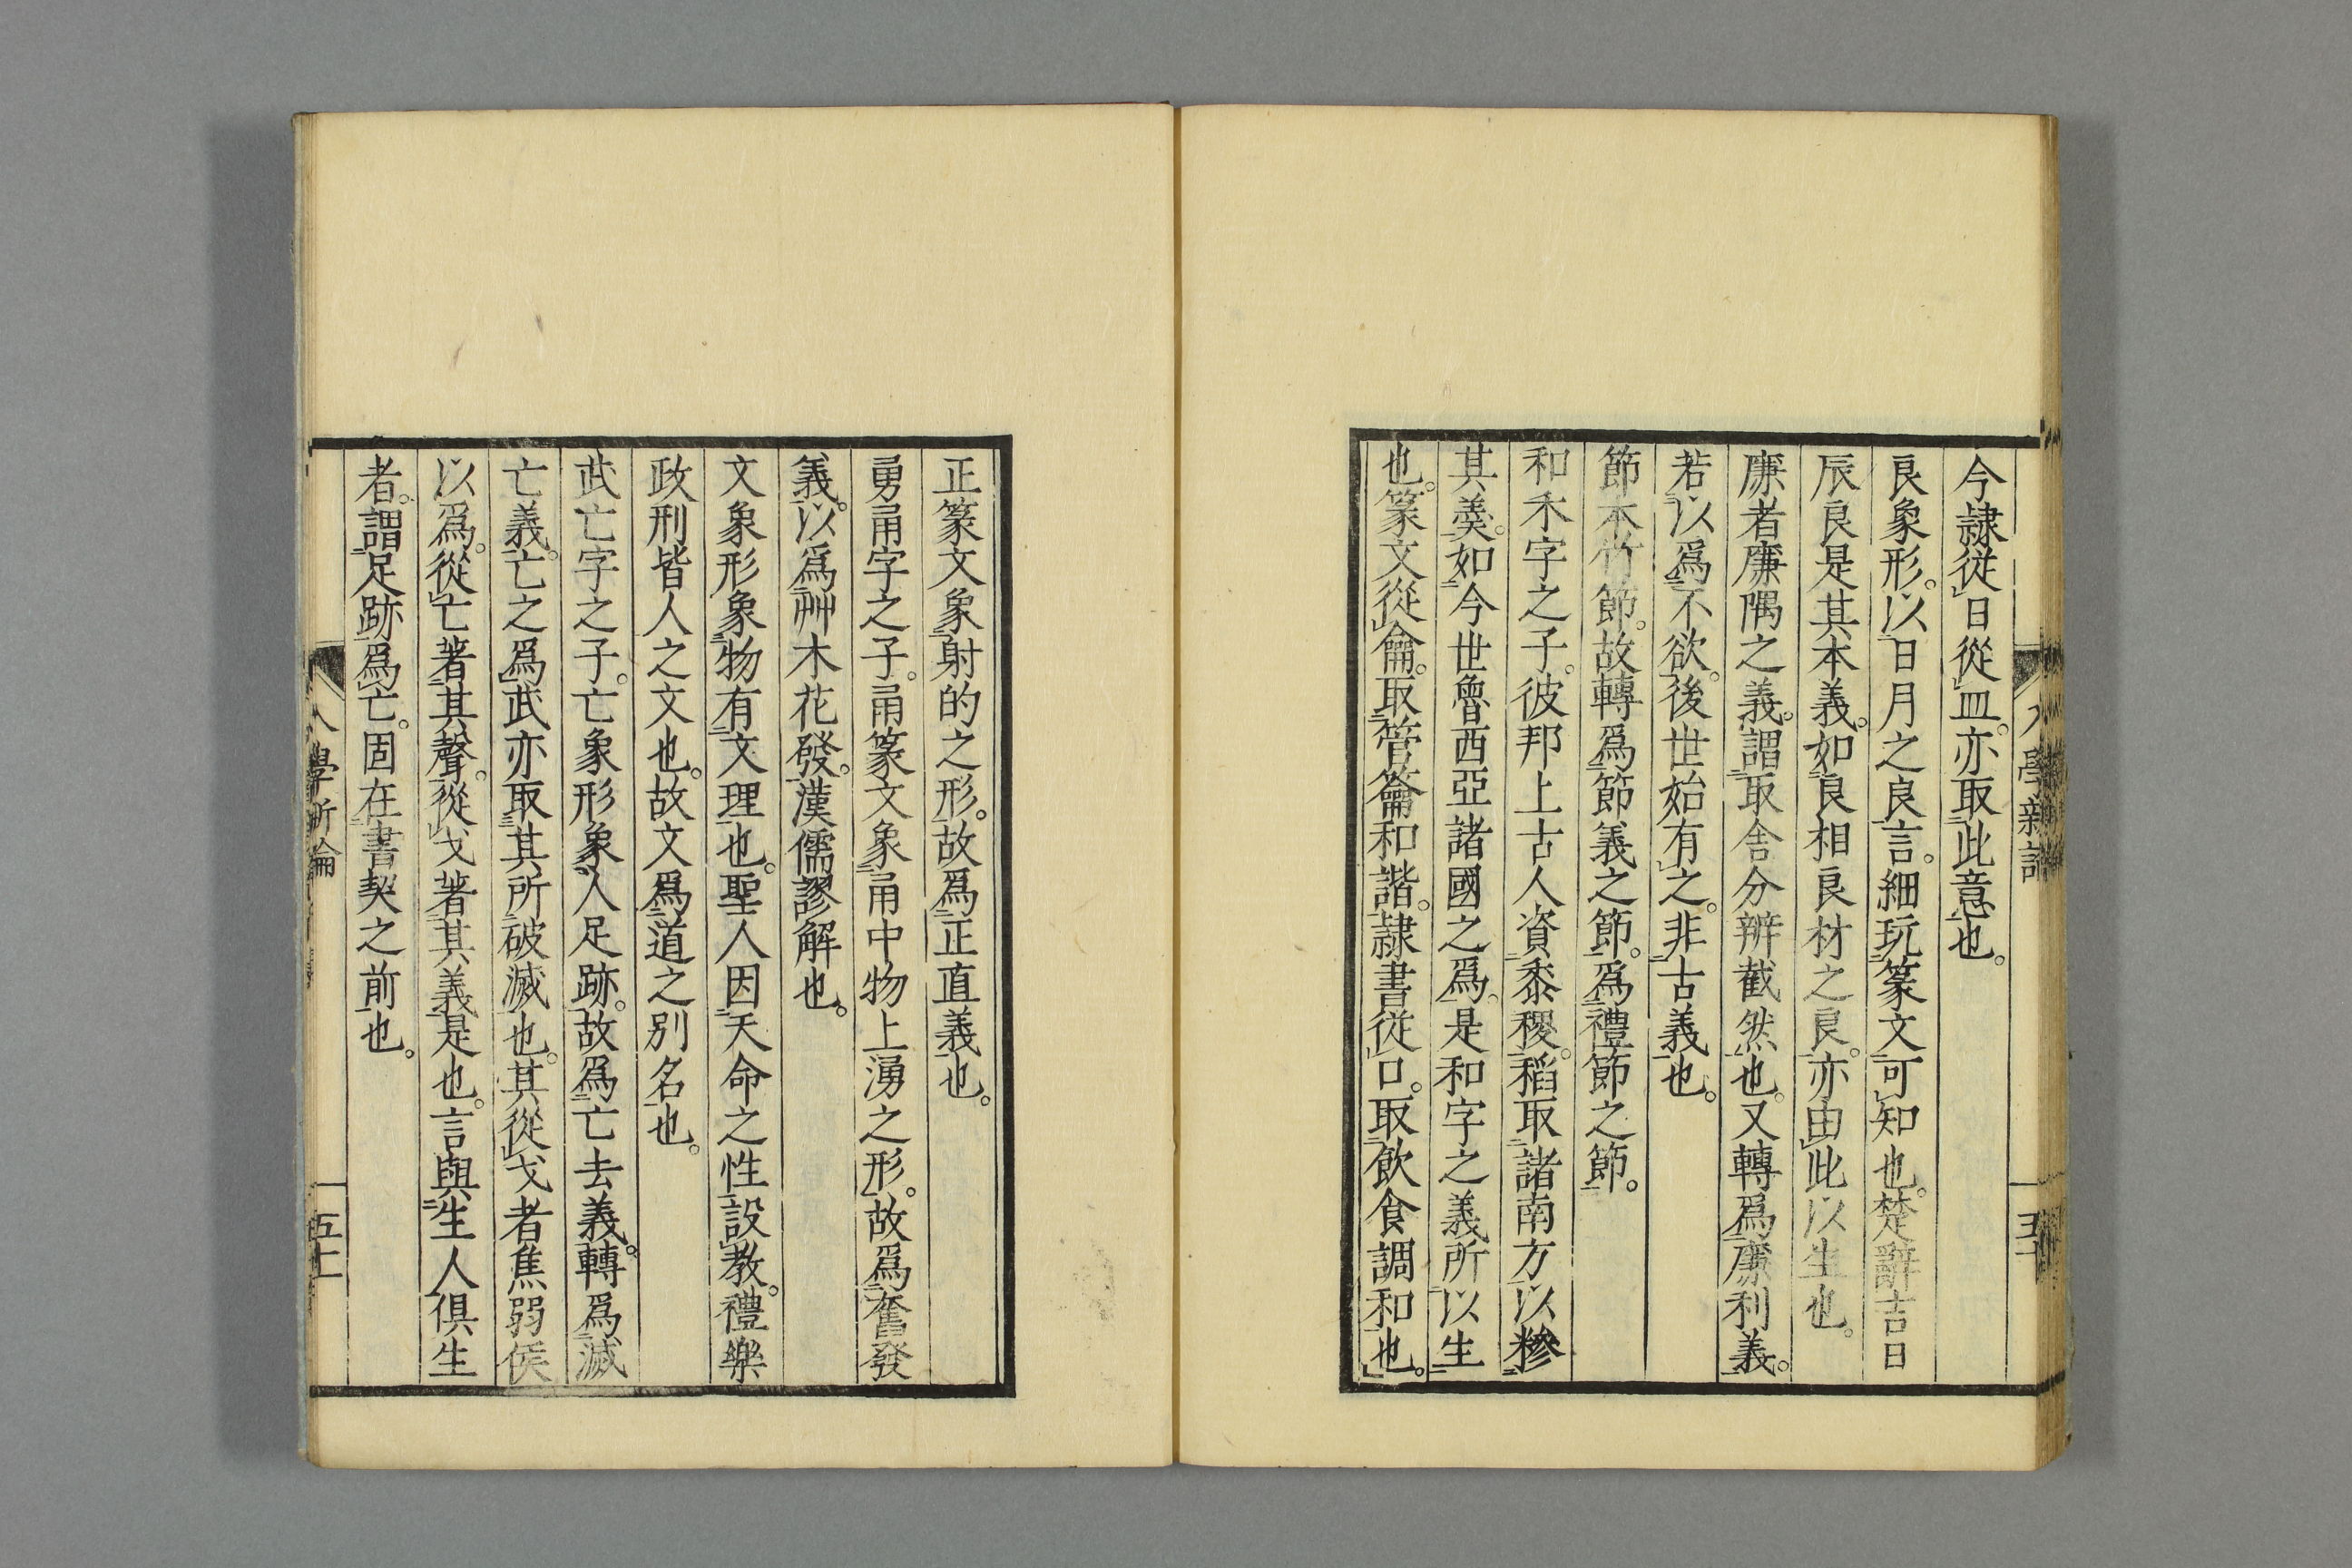 今隷従日從皿。亦取此意也。
良象形。以日月之良言。細玩篆文可知也。楚辭吉日
辰良是其本義。如良相良材之良。亦由此以生也。
廉者廉隅之義。謂取舍分辨截然也。又轉爲廉利義。
若以爲不欲。後世始有之。非古義也。
節本竹節。故轉爲節義之節。爲禮節之節。
和禾字之子。彼邦上古人資黍稷。稻取諸南方以糝
其羹。如今世魯西亞諸國之爲。是和字之義所以生
也。篆文從龠。取管籥和諧。隷書從口。取飲食調和也。
五十
正篆文象射的之形。故爲正直義也。
勇甬字之子。甬篆文象甬中物上湧之形。故爲奮發
義。以爲艸木花發。漢儒謬解也。
文象形象物有文理也。聖人因天命之性設教。禮樂
政刑皆人之文也。故文爲道之別名也。
武亡字之子。亡象形象人足跡。故爲亡去義。轉爲滅
亡義。亡之爲武亦取其所破滅也。其從戈者焦弱侯
以爲。從亡著其聲。從戈著其義是也。言與生人俱生
者。謂足跡爲亡。固在書契之前也。
入學新論
五十一